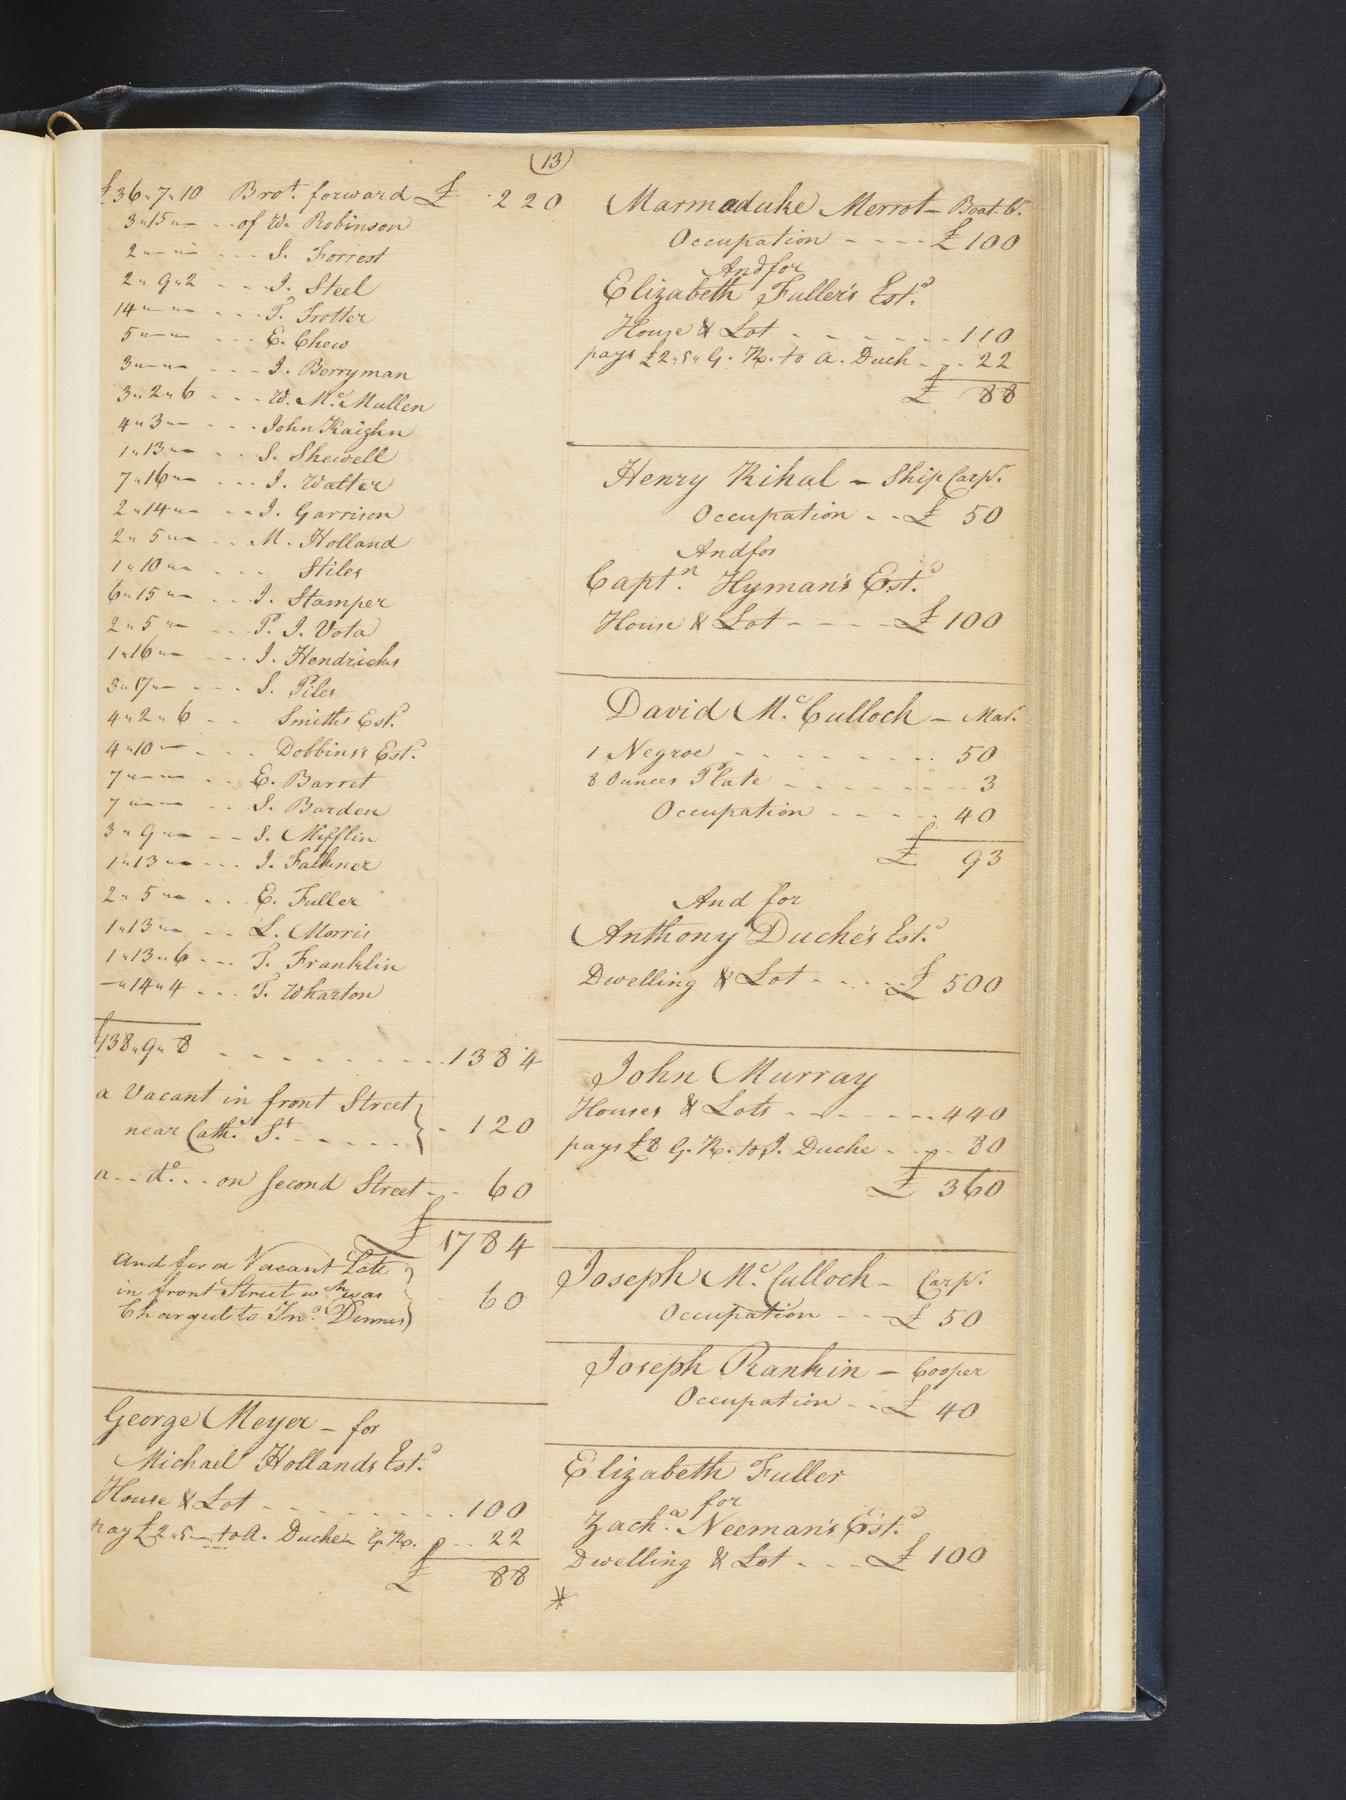 (13)
£36..7..10 Bro.t forward £ 220
3..15..— - - of W. Robinson
2..—..— - - - S. Forrest
2..9..2 - - - J. Steel
14..—..— - - - T. Trotter
5..—..— - - - E. Chew
3..—..— - - - J. Berryman
3..2..6 - - - W. Mc.Mullen
4..3..— - - - John Kaighn
1..13..— - - - S. Shewell
7..16..— - - - J. Walter
2..14..— - - J. Garrison
2..5..— - - - M. Holland
1..10..— - - - Stiles
6..15..— - - - J. Stamper
2..5..— - - - P. J. Vota
1..16..— - - - J. Hendricks
3..17..— - - - S. Piles
4..2..6 - - Smiths Est.d
4..10..— - - - Dobbins's Est.d
7..—..— - - E. Barret
7..—..— - - S. Barden
3..9..— - - S. Mifflin
1..13..— - - - J. Falkner
2..5..— - - - E. Fuller
1..13..— - - L. Morris
1..13..6 - - - T. Franklin
—..14..4 - - - T. Wharton
£138..9..8 - - - - - - - 1384
a Vacant in front Street }
near Cath.e S.t - - - - - } - 120
a - - d.o - - on Second Street - - 60
£ 1784
and for a Vacant Lott }
in front Street w.ch was } 60
Charged to Jn.o Dennis }
George Meyer — for
Michael Hollands Est.d
House & Lot - - - - - - - 100
pay £2..5..— to A. Duchee G. R. - - 22
£ 88
Marmaduke Merrot — Boat B.r
Occupation - - - - £ 100
And for
Elizabeth Fuller's Est.d
House & Lot - - - - - - 110
pays £2..5.. G. R. to A. Duch - - - 22
£ 88
Henry Rihal — Ship Carp.r
Occupation - - £ 50
And for
Capt.n Hyman's Est.d
House & Lot - - - - £ 100
David Mc.Culloch — Mar.r
1 Negroe - - - - - - - 50
8 Ounces Plate - - - - - - - 3
Occupation - - - - - 40
£ 93
And for
Anthony Duche's Est.d
Dwelling & Lot - - - - £ 500
John Murray
Houses & Lots - - - - - - - 440
pays £8 G. R. to J. Duche - - - 80
£ 360
Joseph Mc.Culloch — Carp.r
Occupation - - - £ 50
Joseph Rankin — Cooper
Occupation - - £ 40
Elizabeth Fuller
for
Zach.a Neeman's Est.d
Dwelling & Lot - - - £ 100
*